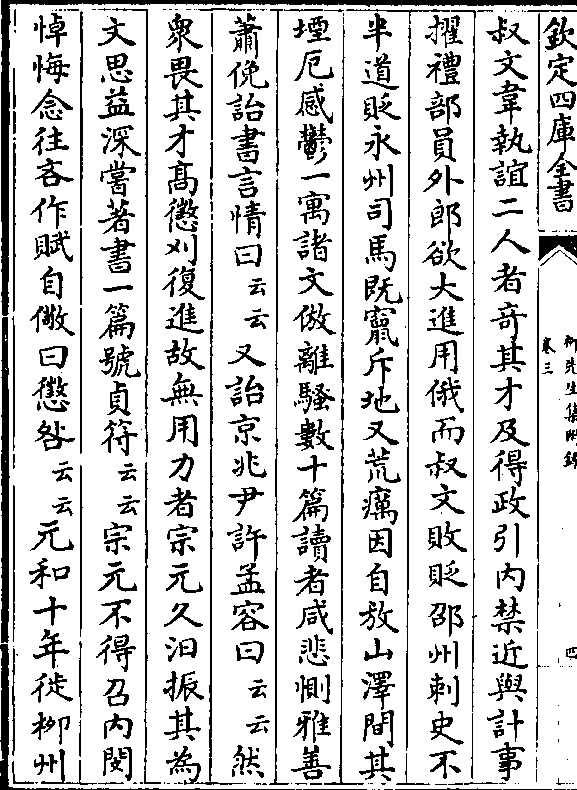 欽定四庫全書
柳先生集附錄
卷三
四
叔文韋執誼二人者奇其才及得政引内禁近與計事
擢禮部員外郎欲大進用俄而叔文敗貶邵州刺史不
半道貶永州司馬既竄斥地又荒癘因自放山澤間其
堙厄感鬱一寓諸文倣離騷數十篇讀者咸悲惻雅善
蕭俛詒書言情曰云云又詒京兆尹許孟容曰云云然
衆畏其才髙懲刈復進故無用力者宗元久汩振其為
文思益深嘗著書一篇號貞符云云宗元不得召内閔
悼悔念往吝作賦自儆曰懲咎云云元和十年徙柳州